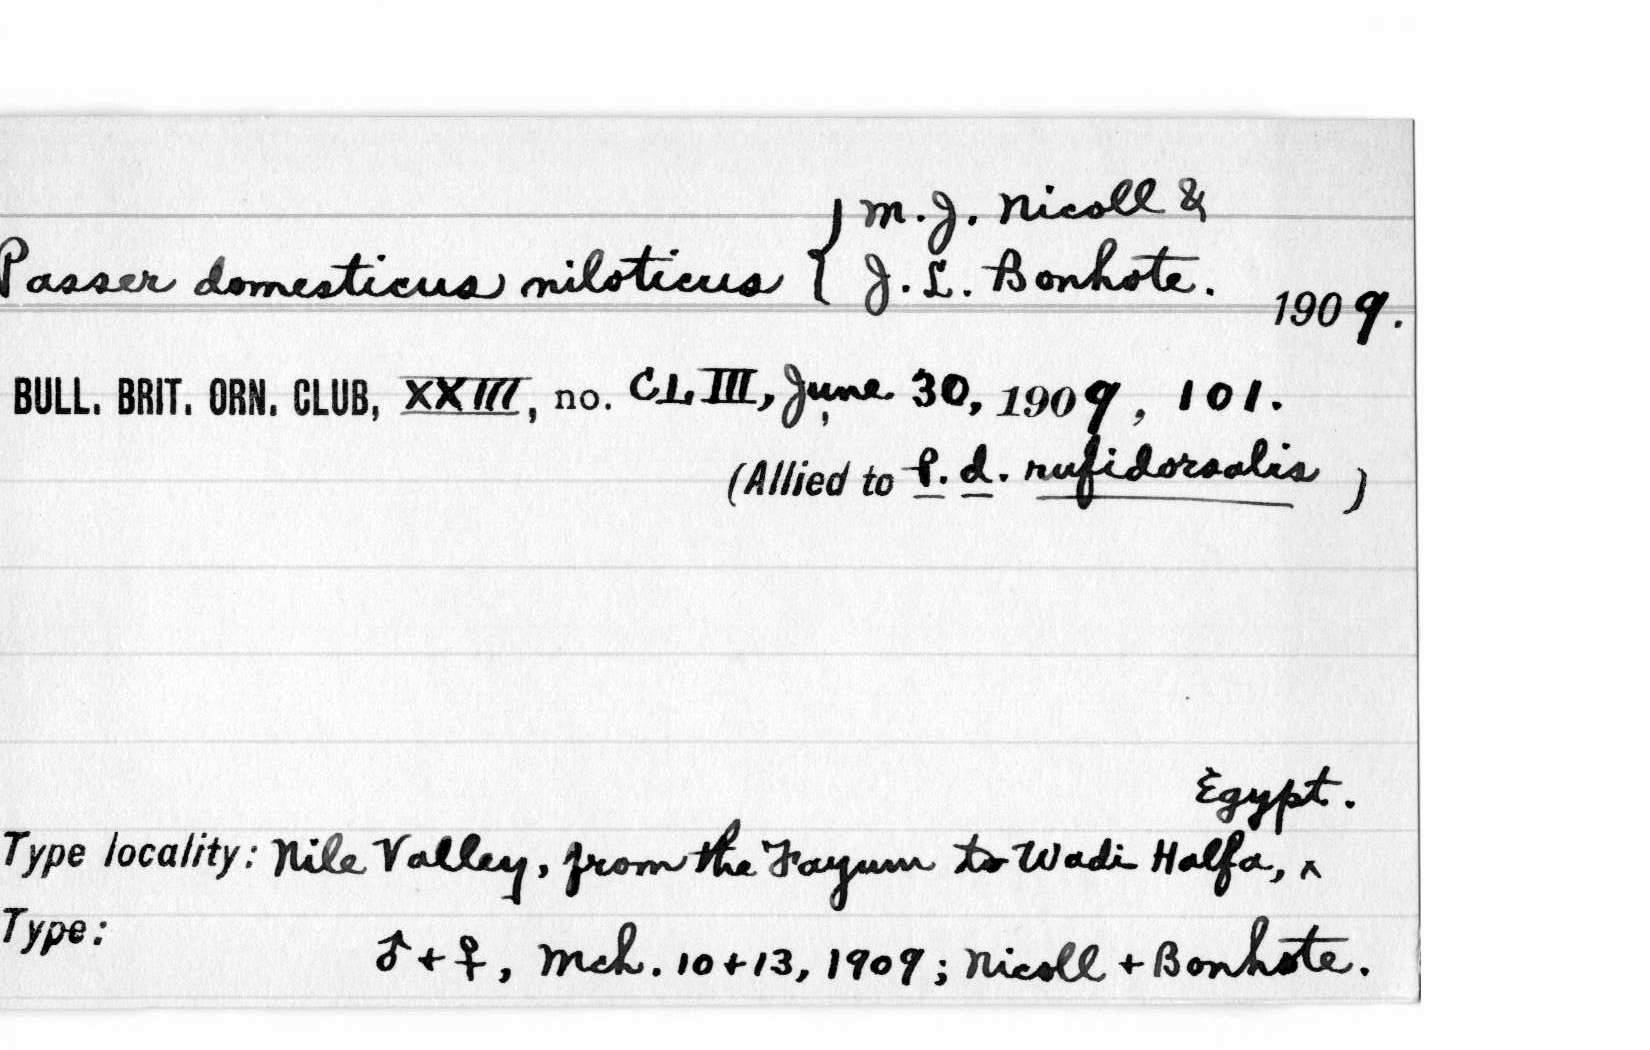 M. J. Nicoll &
Passer domesticus niloticus { J. L. Bonhote.
1909.
BULL. BRIT. ORN. CLUB, XXIII, no. CLIII, June 30, 1909, 101.
(Allied to P. d. rufidorsalis )
Egypt.
Type locality: Nile Valley, from the Fayum to Wadi Halfa, ^
Type: ♂ + ♀, Mch. 10 + 13, 1909; Nicoll + Bonhote.